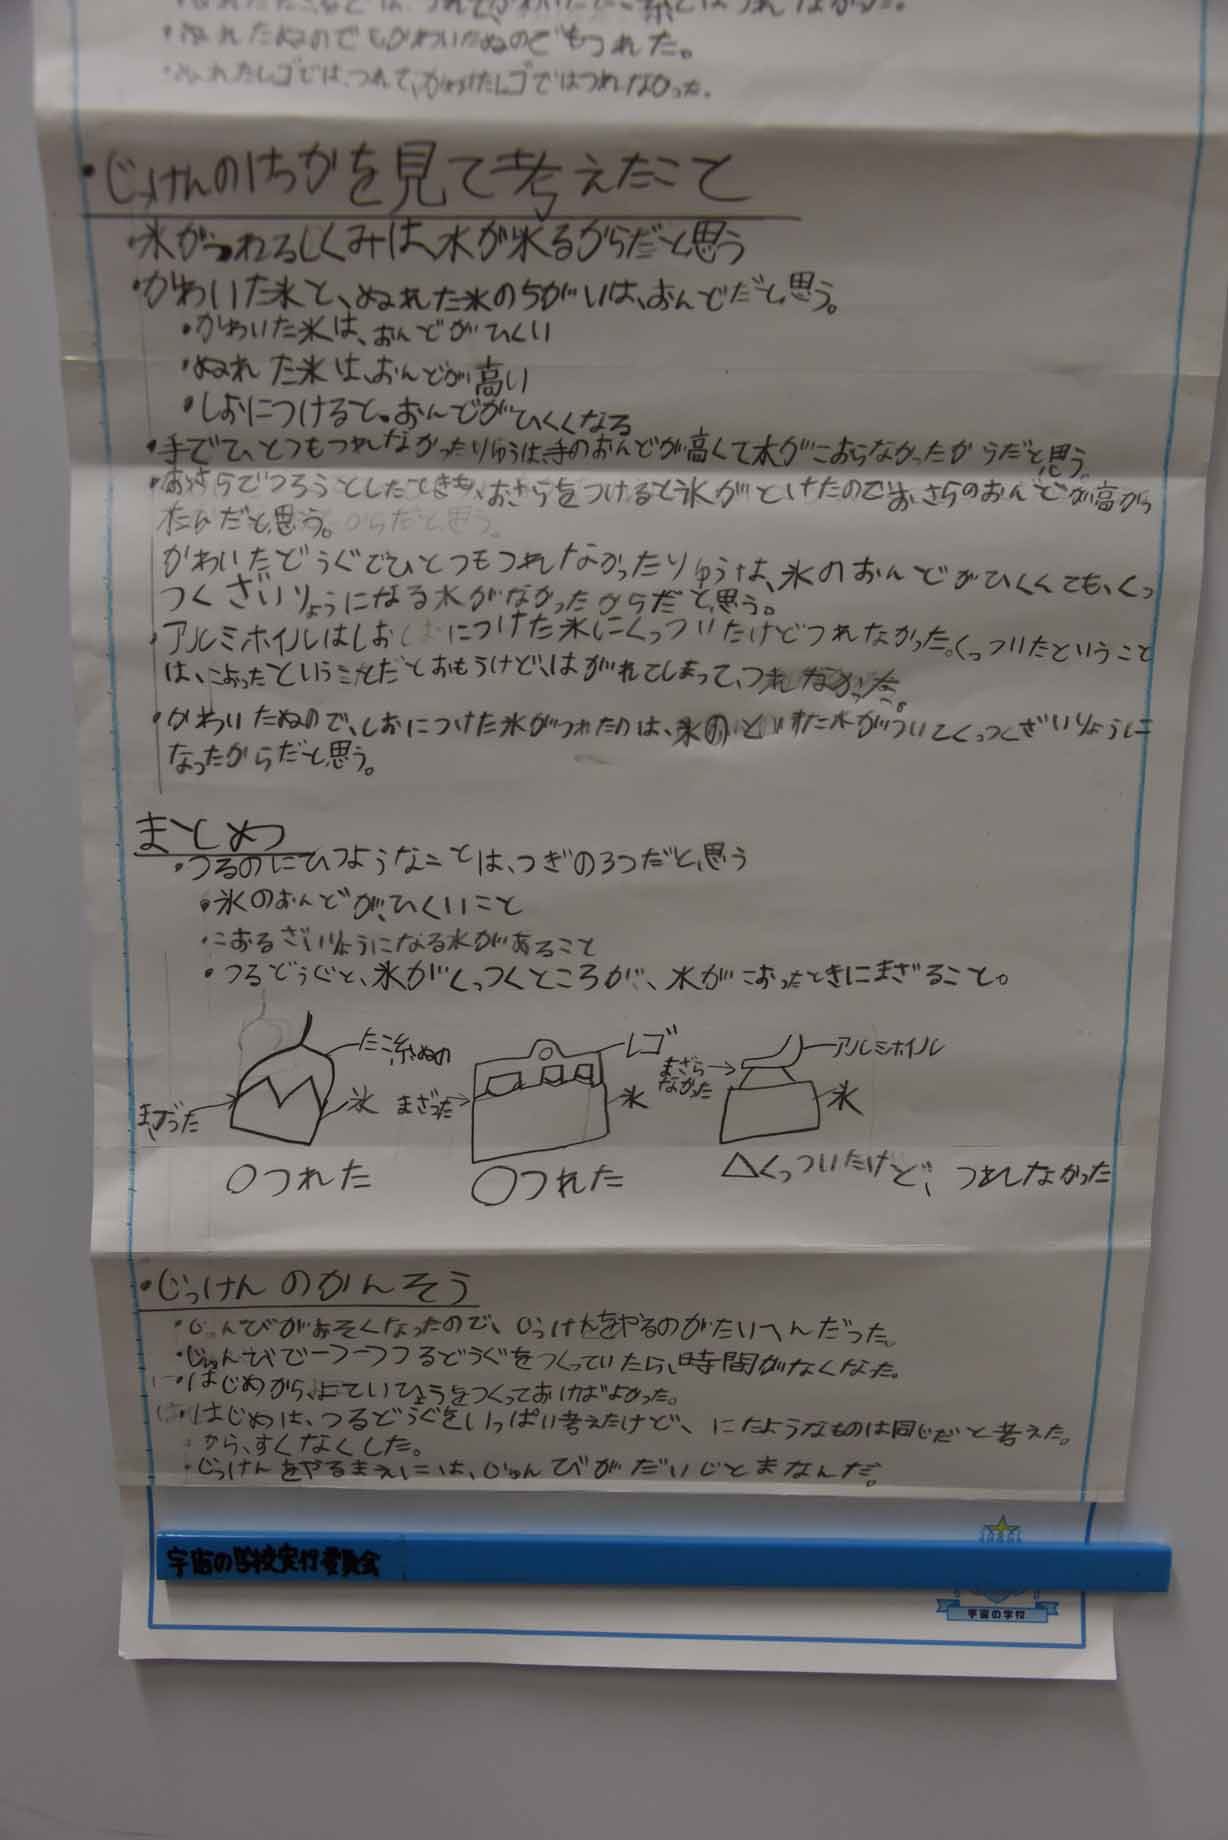 ・ぬれたぬのでもかわいたぬのでもつれた。
・ぬれたレゴでは、つれて、かわいたレゴではつれなかった。
・じっけんのけっかを見て考えたこと
・氷がつれるしくみは、水が氷るからだと思う
・かわいた氷と、ぬれた氷のちがいは、おんどだと思う。
・かわいた氷は、おんどがひくい
・ぬれた氷は、おんどが高い
・しおにつけると、おんどがひくくなる
・手でひとつもつれなかったりゆうは、手のおんどが高くて水がこおらなかったからだと思う。
・おさらでつろうとしたときも、おさらをつけると氷がとけたのでおさらのおんどが高かっ
ただと思う。からだと思う。
かわいたどうぐでひとつもつれなかったりゆうは、氷のおんどがひくくても、くっ
つくざいりょうになる水がなかったからだと思う。
・アルミホイルはしおにつけた氷にくっついたけどつれなかった。くっついたということ
は、こおったということだとおもうけど、はがれてしまって、つれなかった。
・かわいたぬので、しおにつけた氷がつれたのは、氷のとけた水がついてくっつくざいりょうに
なったからだと思う。
まとめ
・つるのにひつようなことは、つぎの3つだと思う
・氷のおんどが、ひくいこと
・こおるざいりょうになる水があること
・つるどうぐと、氷がくっつくところが、水がこおったときにまざること。
たこ糸ぬの
氷
まざった
○つれた
レゴ
氷
まざった
○つれた
アルミホイル
氷
まざらなかった
△くっついたけど、つれなかった
・じっけんのかんそう
・じゅんびがおそくなったので、じっけんをやるのがたいへんだった。
・じゅんびで一つ一つつるどうぐをつくっていたら、時間がなくなった。
・はじめから、よていひょうをつくっておけばよかった。
・はじめは、つるどうぐをいっぱい考えたけど、にたようなものは同じだと考えた。
から、すくなくした。
・じっけんをやるまえには、じゅんびがだいじとまなんだ。
宇宙の学校実行委員会
宇宙の学校